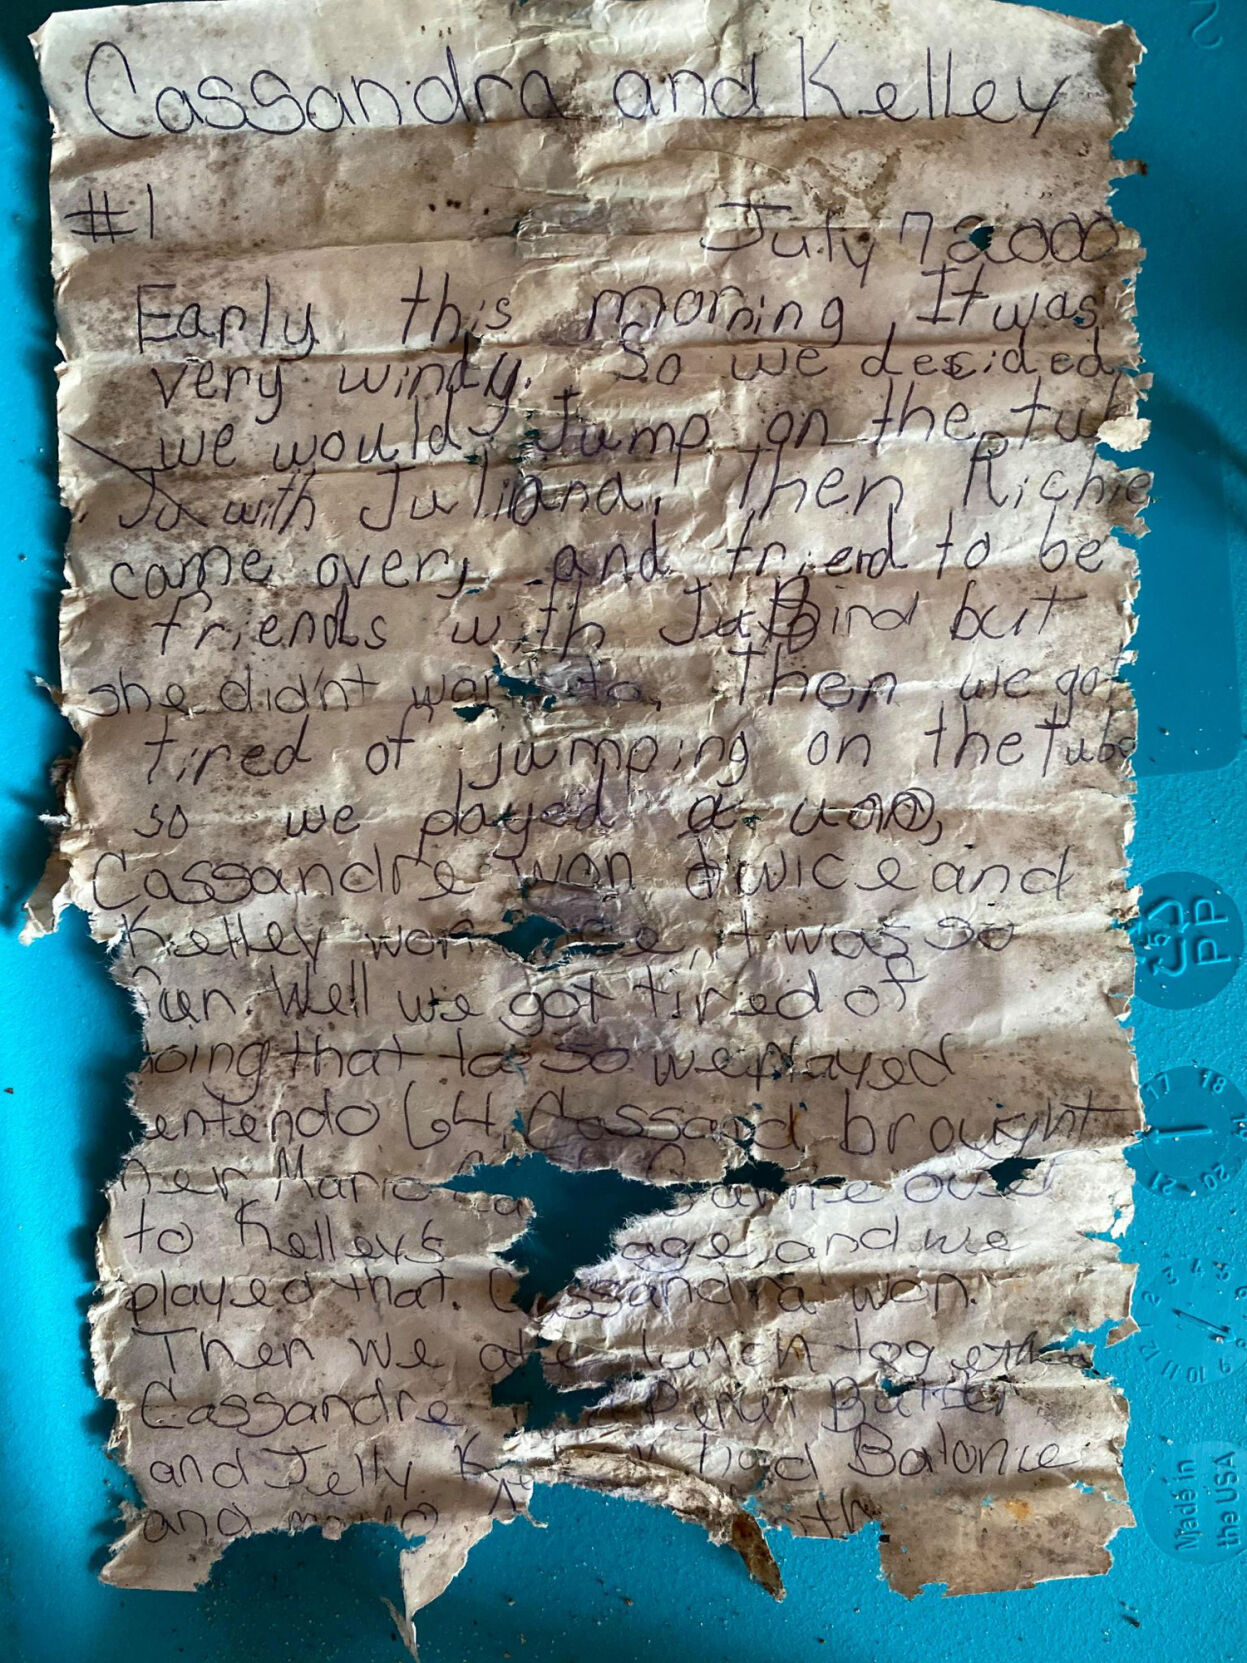 Cassandra and Kelley
#1
July 7 2000
Early this morning It was
very windy. So we decided
we would Jump on the tub
with Juliana. Then Richie
came over, and triend to be
friends with Bird but
she didn't want to. Then we got
tired of jumping on the Tube
so we played uno,
Cassandre won twice and
Kelley won it was so
fun. Well we got tired of
oing that to so we played
entendo 64. Cassand brought
her Mario Game over
to Kelleys age and we
played that. Cassandra won.
Then we ate lunch together
Cassandre Penut Butter
and Jelly had Balonie
and
2
PP
17 18 20 21
1 2 3 4 5 6 9 10 11 12
Made in
the USA